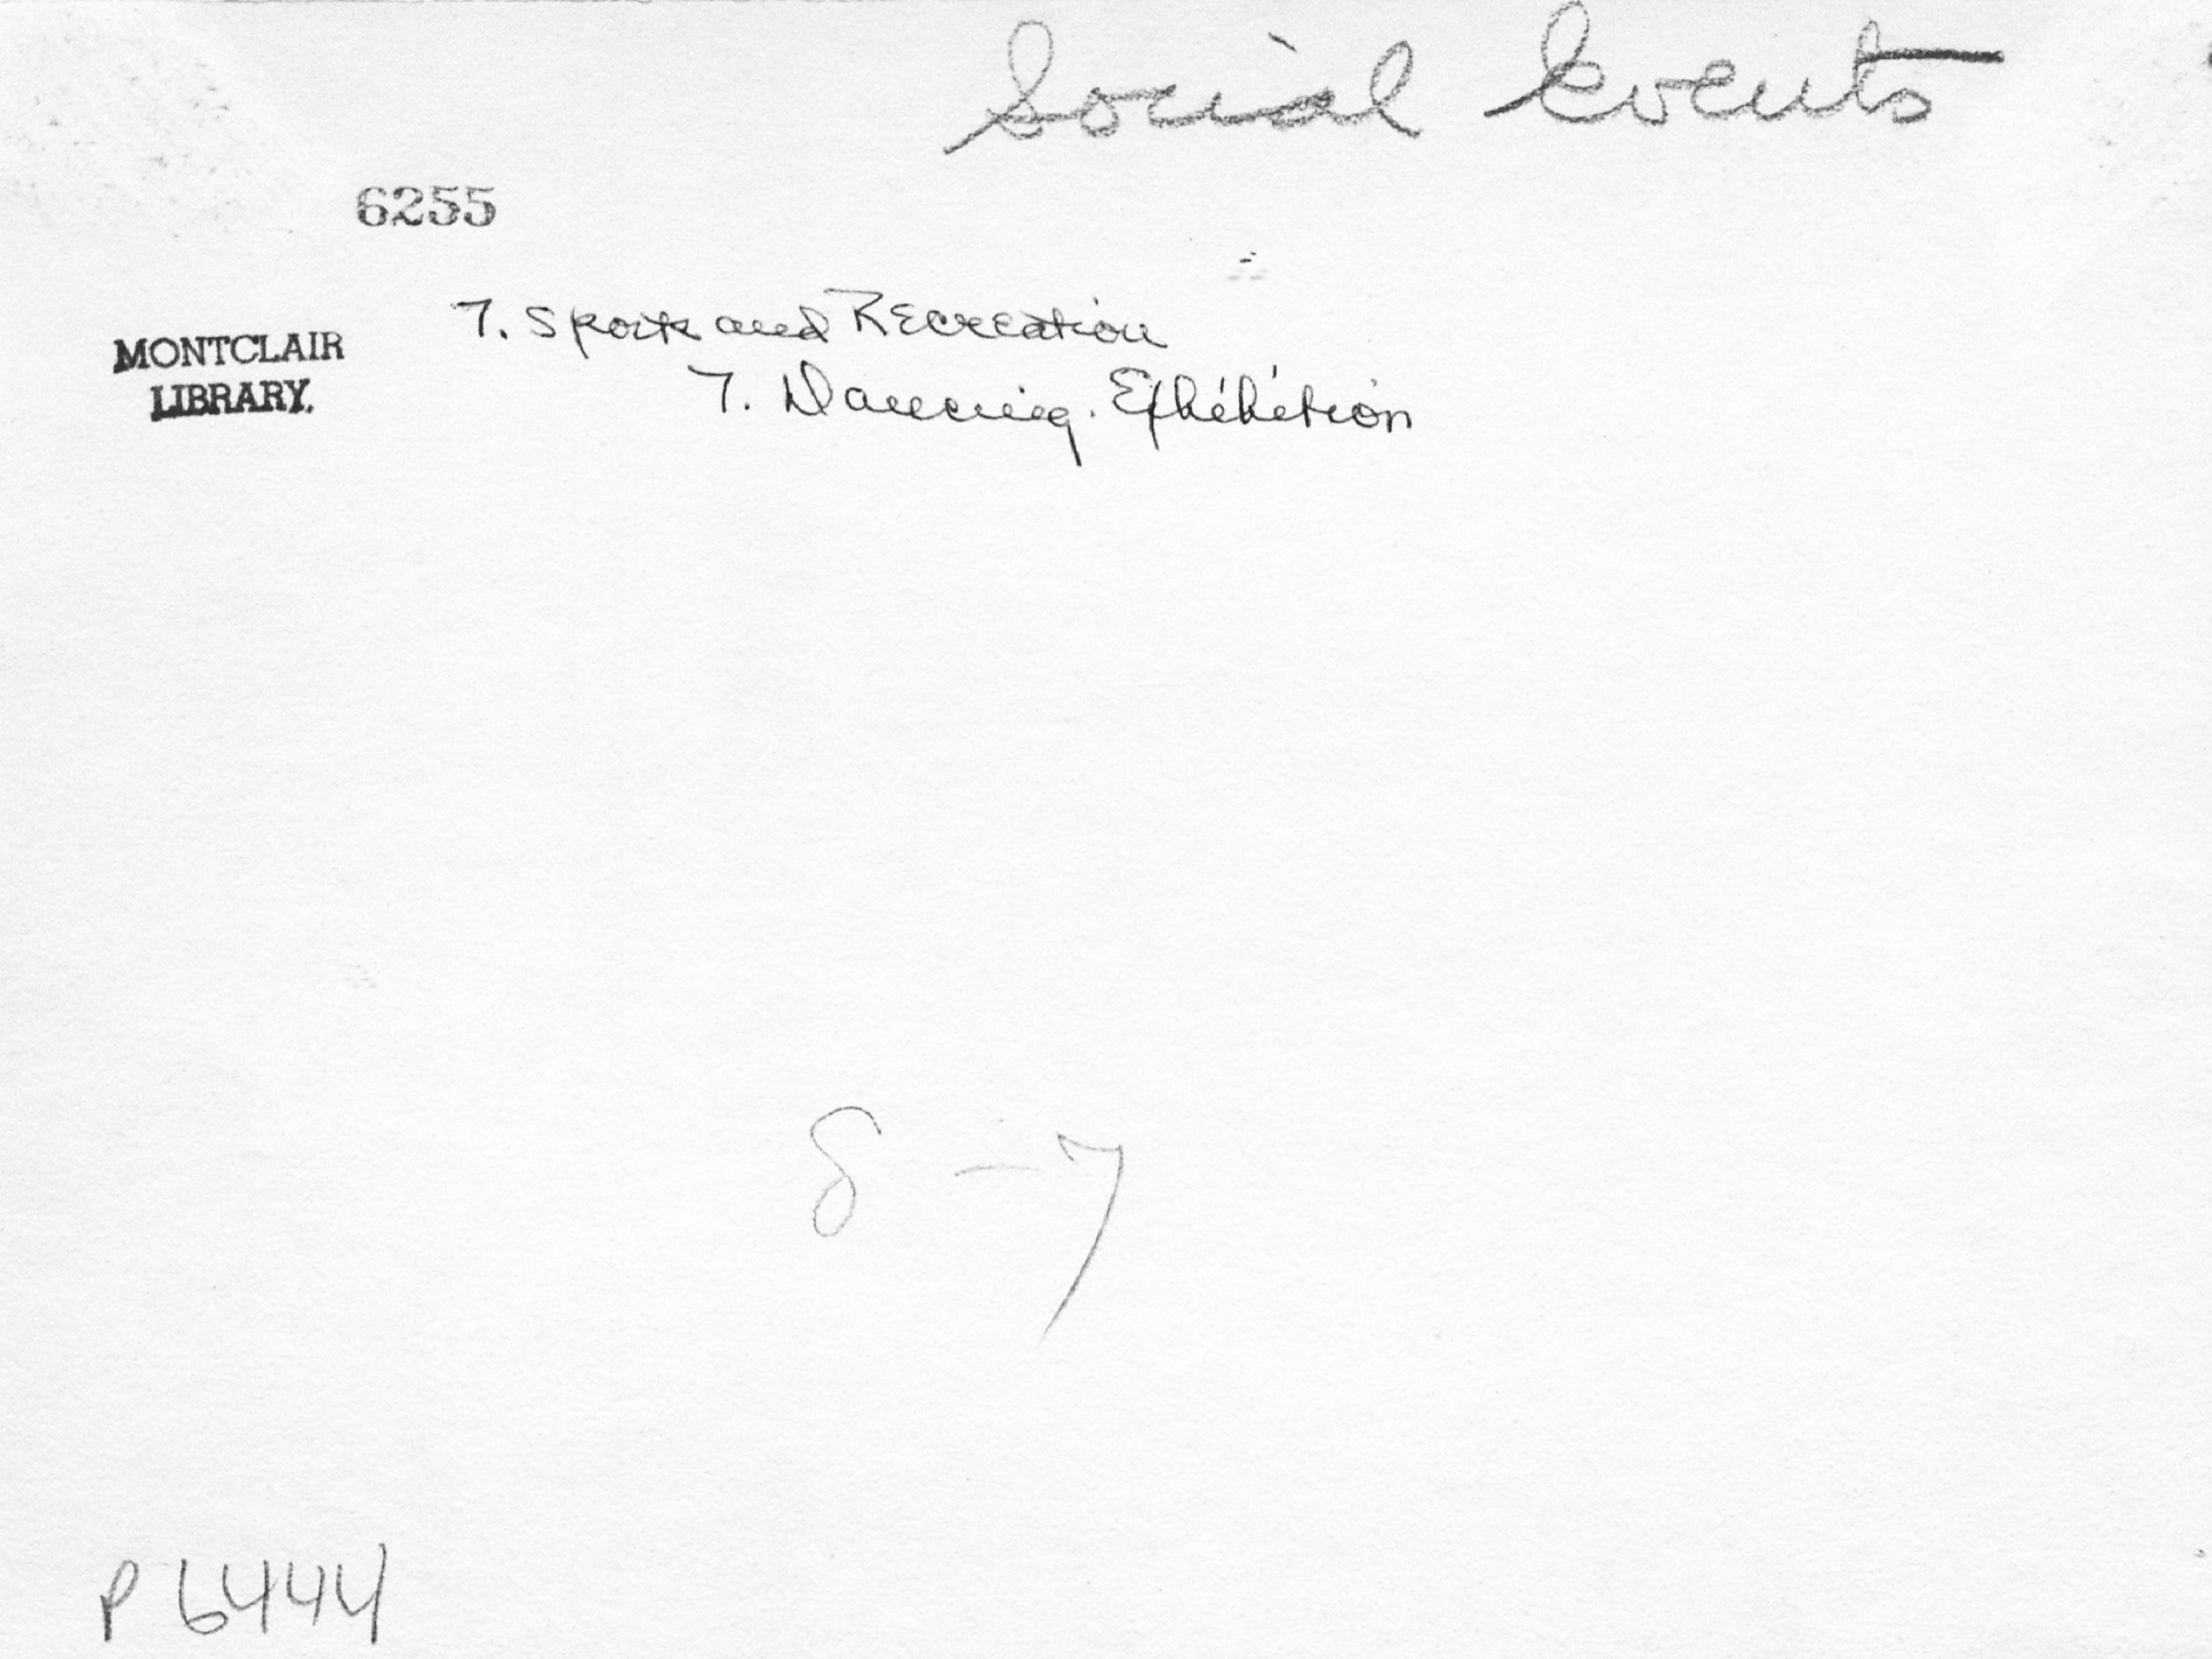 Social Events
6255
7. Sports and Recreation
MONTCLAIR
LIBRARY.
7. Dancing. Exhibition
8-7
P 6444